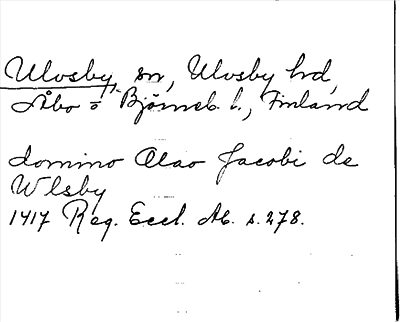 Ulvsby, sn, Ulvsby hd,
Åbo o Björneb. l., Finland
domino Olao Jacobi de
Wlsby
1417 Reg. Eccl. Ab. s. 278.